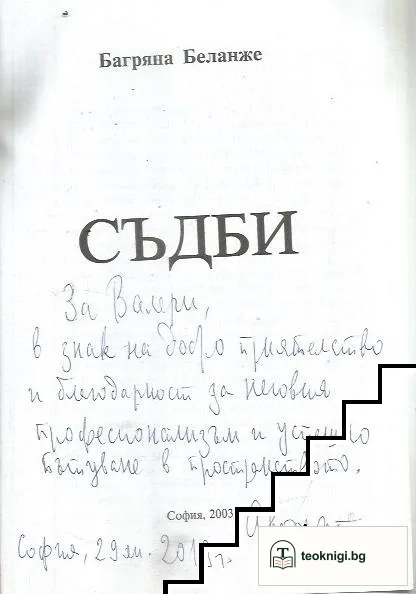 Багряна Беланже
СЪДБИ
За Валери,
в знак на добро приятелство
и благодарност за неговия
професионализъм и успешно
пътуване в пространството.
София, 2003
София, 29
teoknigi.bg